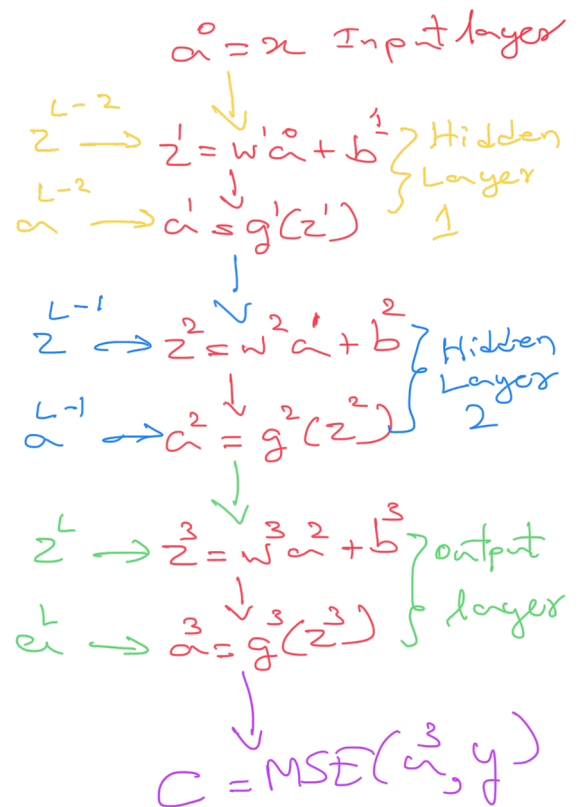 a⁰ = x Input layer
z^{L-2} → z¹ = w¹a⁰ + b¹ } Hidden
Layer
a^{L-2} → a¹ = g¹(z¹) 1
z^{L-1} → z² = w²a¹ + b² } Hidden
Layer
a^{L-1} → a² = g²(z²) 2
z^L → z³ = w³a² + b³ } output
layer
a^L → a³ = g³(z³)
C = MSE(a³, y)